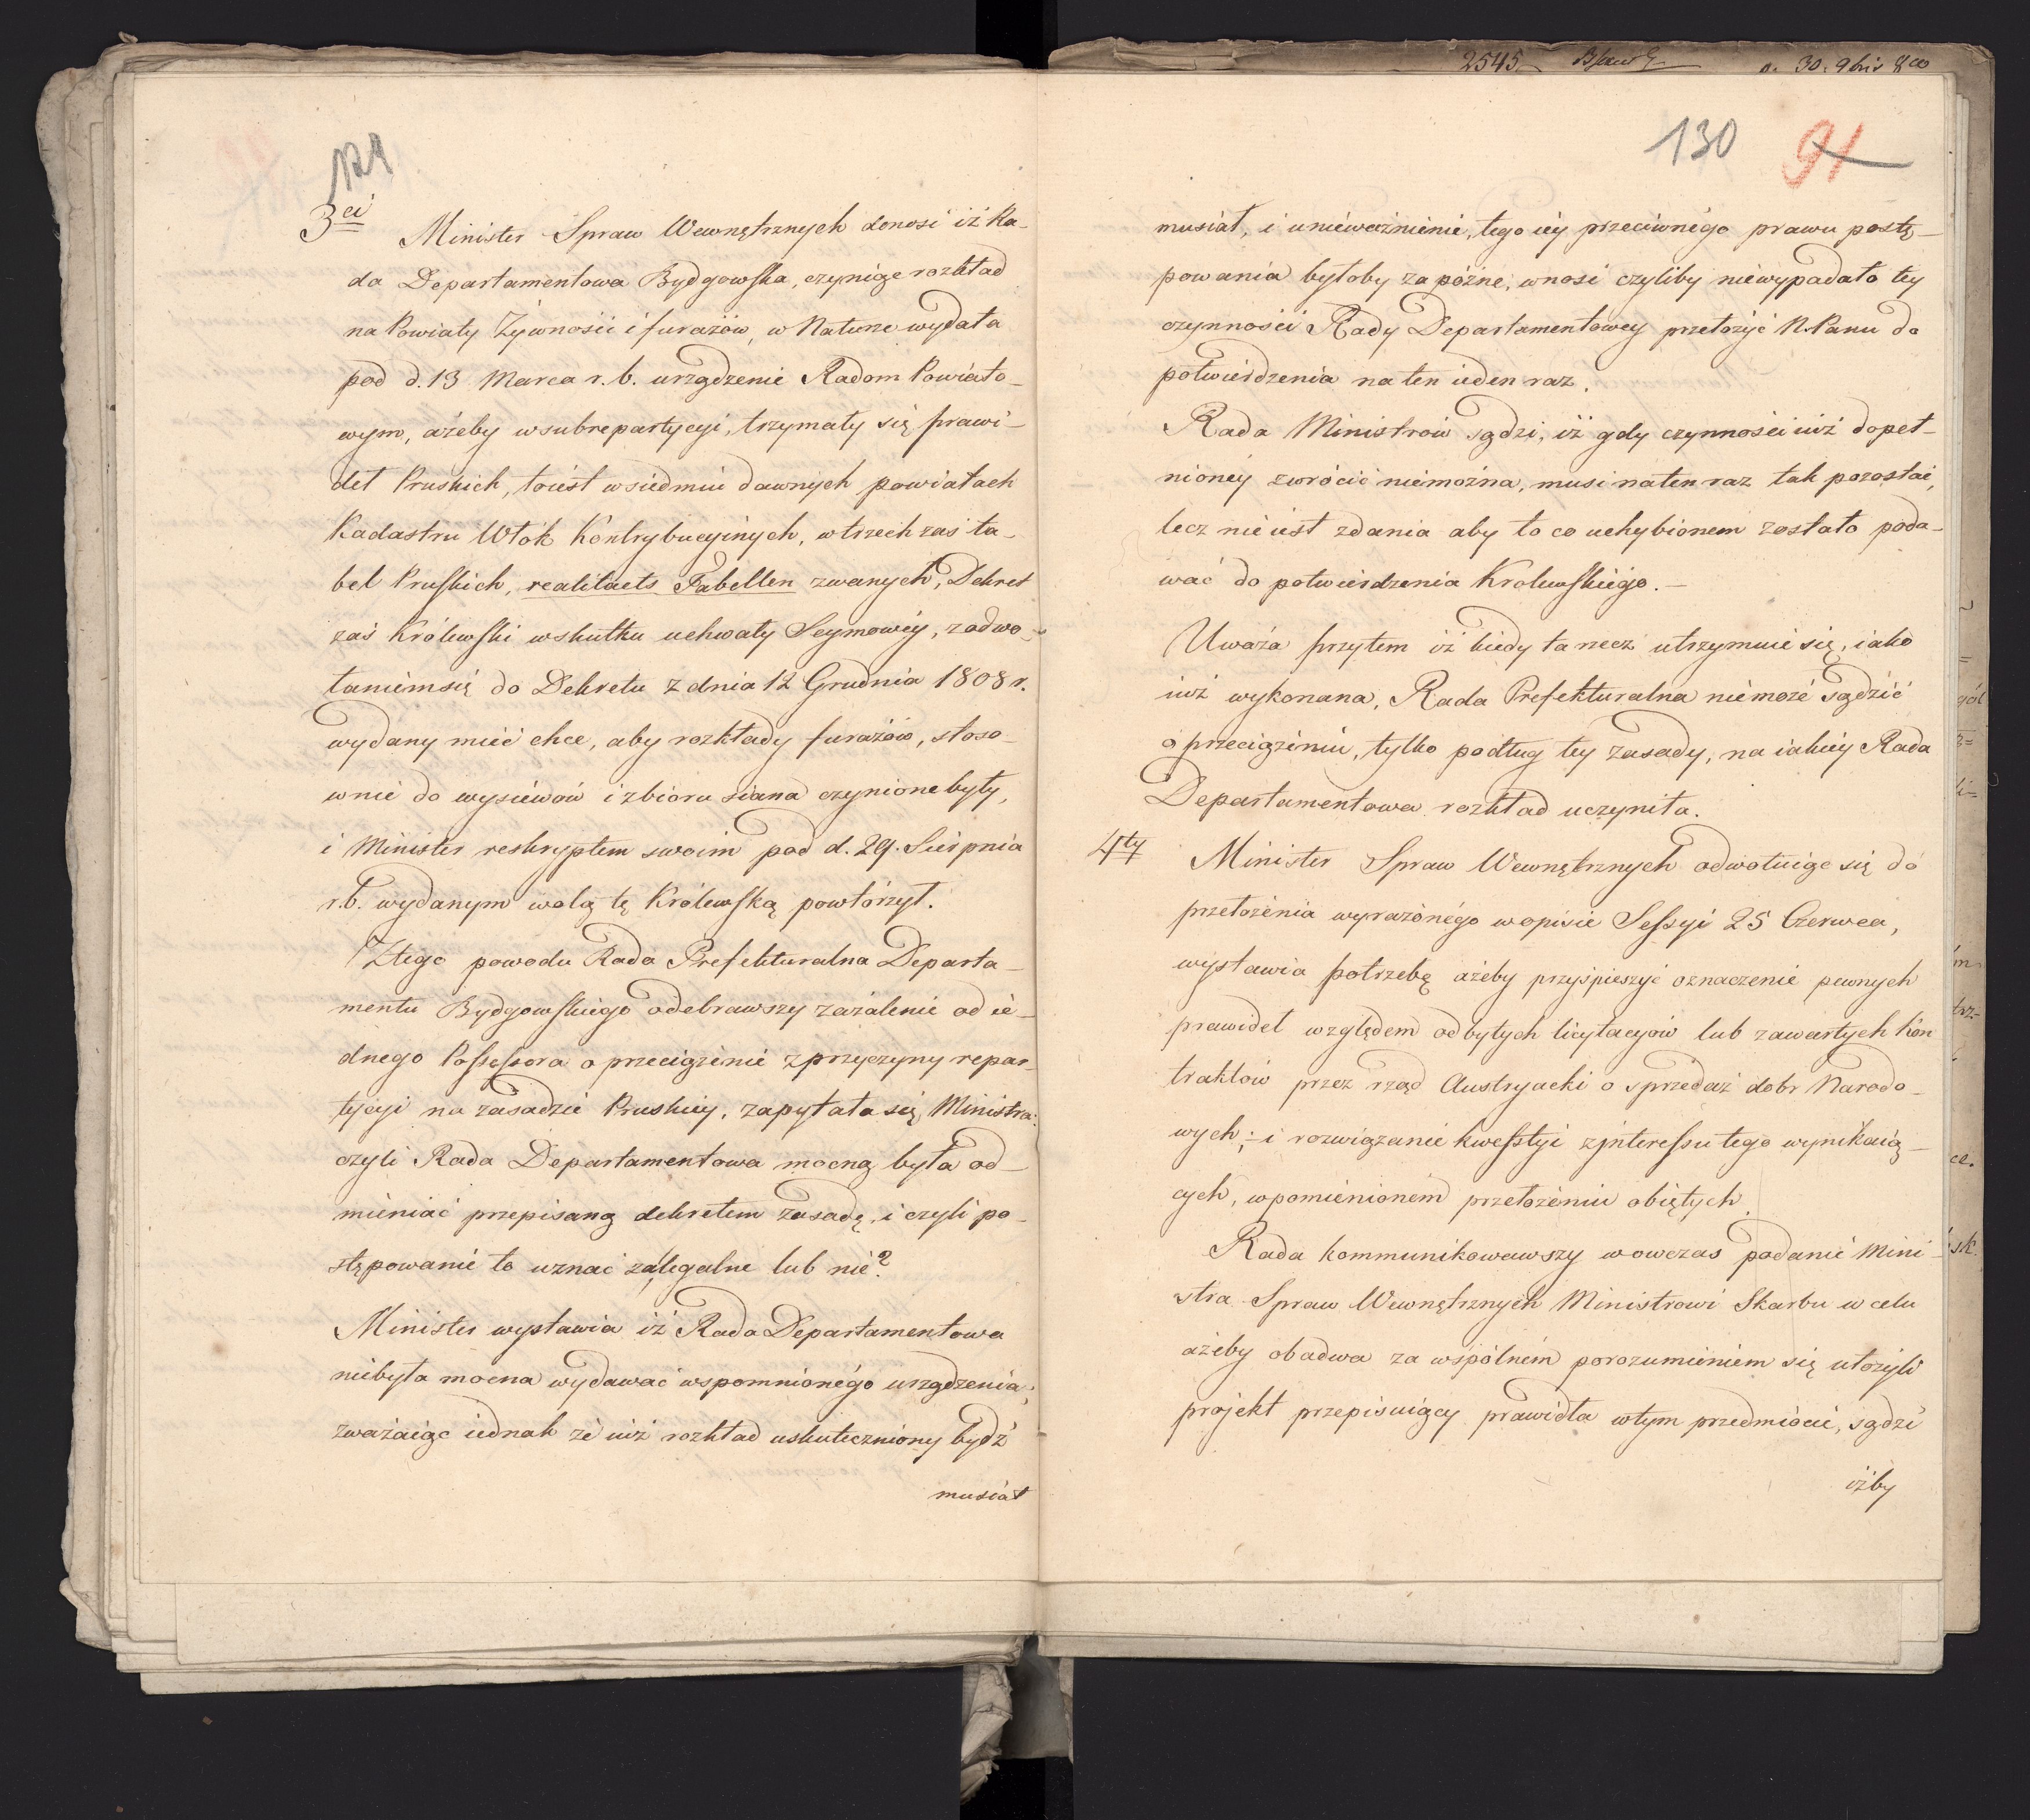 129
3ci
Minister Spraw Wewnętrznych donosi iż Ra-
da Departamentowa Bydgowska, czyniąc rozkład
na Powiaty Żywności i furażów, w Naturze wydała
pod d. 13 Marca r. b. urządzenie Radom Powiato-
wym, ażeby w subrepartycyi, trzymały się prawi-
deł Pruskich, to iest w siedmiu dawnych powiatach
Kadastru Włók Kontrybucyinych, w trzech zaś ta-
bel Pruskich, realitaets Tabellen zwanych, Dekret
zaś Królewski w skutku uchwały Seymowéy, z odwo-
łaniem się do Dekretu z dnia 12 Grudnia 1808 r.
wydany mieć chce, aby rozkłady furażów, stoso-
wnie do wysiéwów i zbioru siana czynione były,
i Minister reskryptem swoim pod d. 29. Sierpnia
r. b. wydanym wolą tę Królewską powtórzył.
Z tego powodu Rada Prefekturalna Departa-
mentu Bydgowskiego odebrawszy zażalenie od ie-
dnego Possessora o przeciążenie z przyczyny repar-
tycyi na zasadzie Pruskiéy, zapytała się Ministra:
czyli Rada Departamentowa mocną była od-
mieniać przepisaną dekretem zasadę, i czyli po-
stępowanie to uznać za legalne lub nie?
Minister wystawia iż Rada Departamentowa
niebyła mocna wydawać wspomnionégo urządzenia;
zważaiąc iednak że iuż rozkład uskuteczniony bydź
musiał
2545
130 91
musiał, i unieważnienie, tego iéy przeciwnégo prawu postę-
powania byłoby za późne; wnosi czyliby niewypadało téy
czynności Rady Departamentowéy przełożyć N. Panu do
potwierdzenia na ten ieden raz.
Rada Ministrów sądzi, iż gdy czynności iuż dopeł-
nionéy zwrócić niemożna, musi na ten raz tak pozostać,
lecz nie iest zdania aby to co uchybionem zostało poda-
wać do potwierdzenia Krolewskiégo.-
Uważa przytem iż kiedy ta rzecz utrzymuie się, iako
iuż wykonana, Rada Prefekturalna niemoże sądzić
o przeciążeniu, tylko podług téy zasady, na iakiéy Rada
Departamentowa rozkład uczyniła.
4ty
Minister Spraw Wewnętrznych odwołuiąc się do
przełożenia wyrażonégo w opisie Sessyi 25 Czerwca,
wystawia potrzebę ażeby przyśpieszyć oznaczenie pewnych
prawideł względem odbytych licytacyów lub zawartych kon
traktów przez rząd Austryacki o sprzedaż dobr Narodo-
wych;- i rozwiązanie kwestyi z jnteressu tego wynikaią-
cych, w pomienionem przełożeniu obiętych.
Rada kommunikowawszy wowczas podanie Mini-
stra Spraw Wewnętrznych Ministrowi Skarbu w celu
ażeby obadwa za wspólném porozumieniem się ułożyli
projekt przepisuiący prawidła w tym przedmiocie, sądzi
iżby